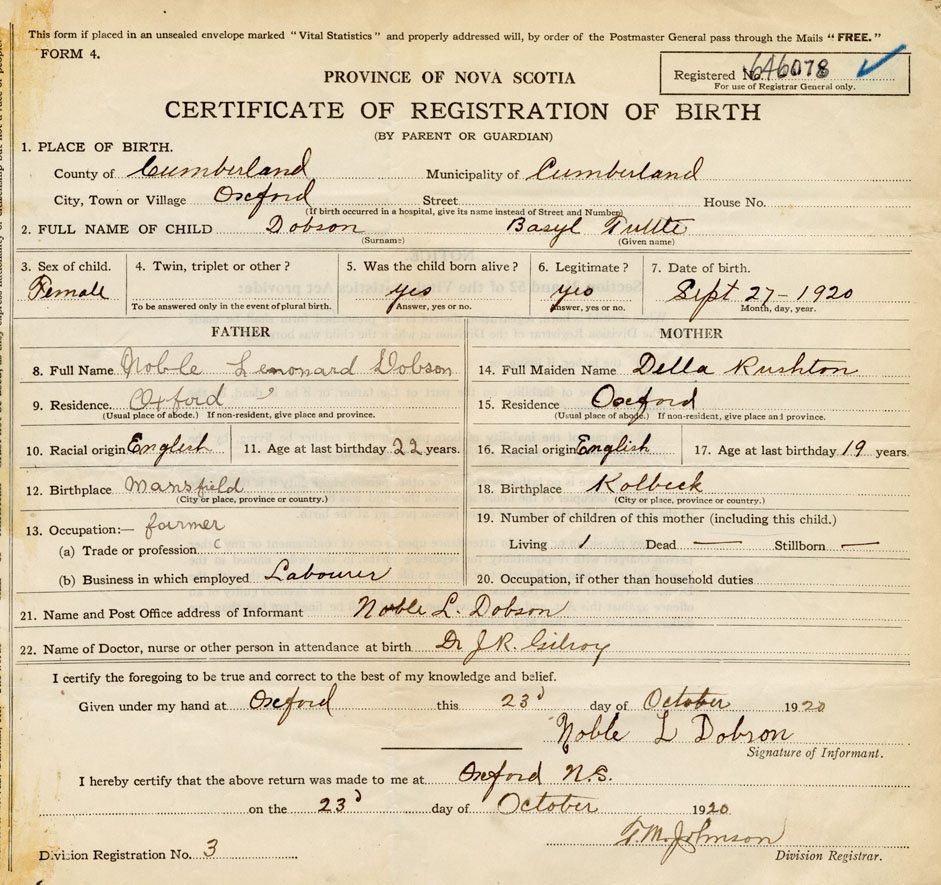 This form if placed in an unsealed envelope marked "Vital Statistics" and properly addressed will, by order of the Postmaster General pass through the Mails "FREE."
FORM 4.
Registered No. 646078
For use of Registrar General only.
PROVINCE OF NOVA SCOTIA
CERTIFICATE OF REGISTRATION OF BIRTH
(BY PARENT OR GUARDIAN)
1. PLACE OF BIRTH.
County of Cumberland Municipality of Cumberland
City, Town or Village Oxford Street House No.
(If birth occurred in a hospital, give its name instead of Street and Number)
2. FULL NAME OF CHILD Dobson Basyl Tuttle
(Surname) (Given name)
3. Sex of child. 4. Twin, triplet or other? 5. Was the child born alive? 6. Legitimate? 7. Date of birth.
Female yes yes Sept 27-1920
To be answered only in the event of plural birth. Answer, yes or no. Answer, yes or no. Month, day, year.
FATHER MOTHER
8. Full Name Noble Lenonard Dobson
9. Residence. Oxford
(Usual place of abode.) If non-resident, give place and province.
10. Racial origin English 11. Age at last birthday 22 years.
12. Birthplace Mansfield
(City or place, province or country.)
13. Occupation:— farmer
(a) Trade or profession
(b) Business in which employed Labourer
14. Full Maiden Name Della Rushton
15. Residence Oxford
(Usual place of abode.) If non-resident, give place and province.
16. Racial origin English 17. Age at last birthday 19 years.
18. Birthplace Kolbeck
(City or place, province or country.)
19. Number of children of this mother (including this child.)
Living 1 Dead — Stillborn —
20. Occupation, if other than household duties
21. Name and Post Office address of Informant Noble L. Dobson
22. Name of Doctor, nurse or other person in attendance at birth Dr J.R. Gilroy
I certify the foregoing to be true and correct to the best of my knowledge and belief.
Given under my hand at Oxford this 23d day of October 1920
Noble L Dobson
Signature of Informant.
I hereby certify that the above return was made to me at Oxford N.S.
on the 23d day of October 1920
T.M. Johnson
Division Registration No. 3 Division Registrar.